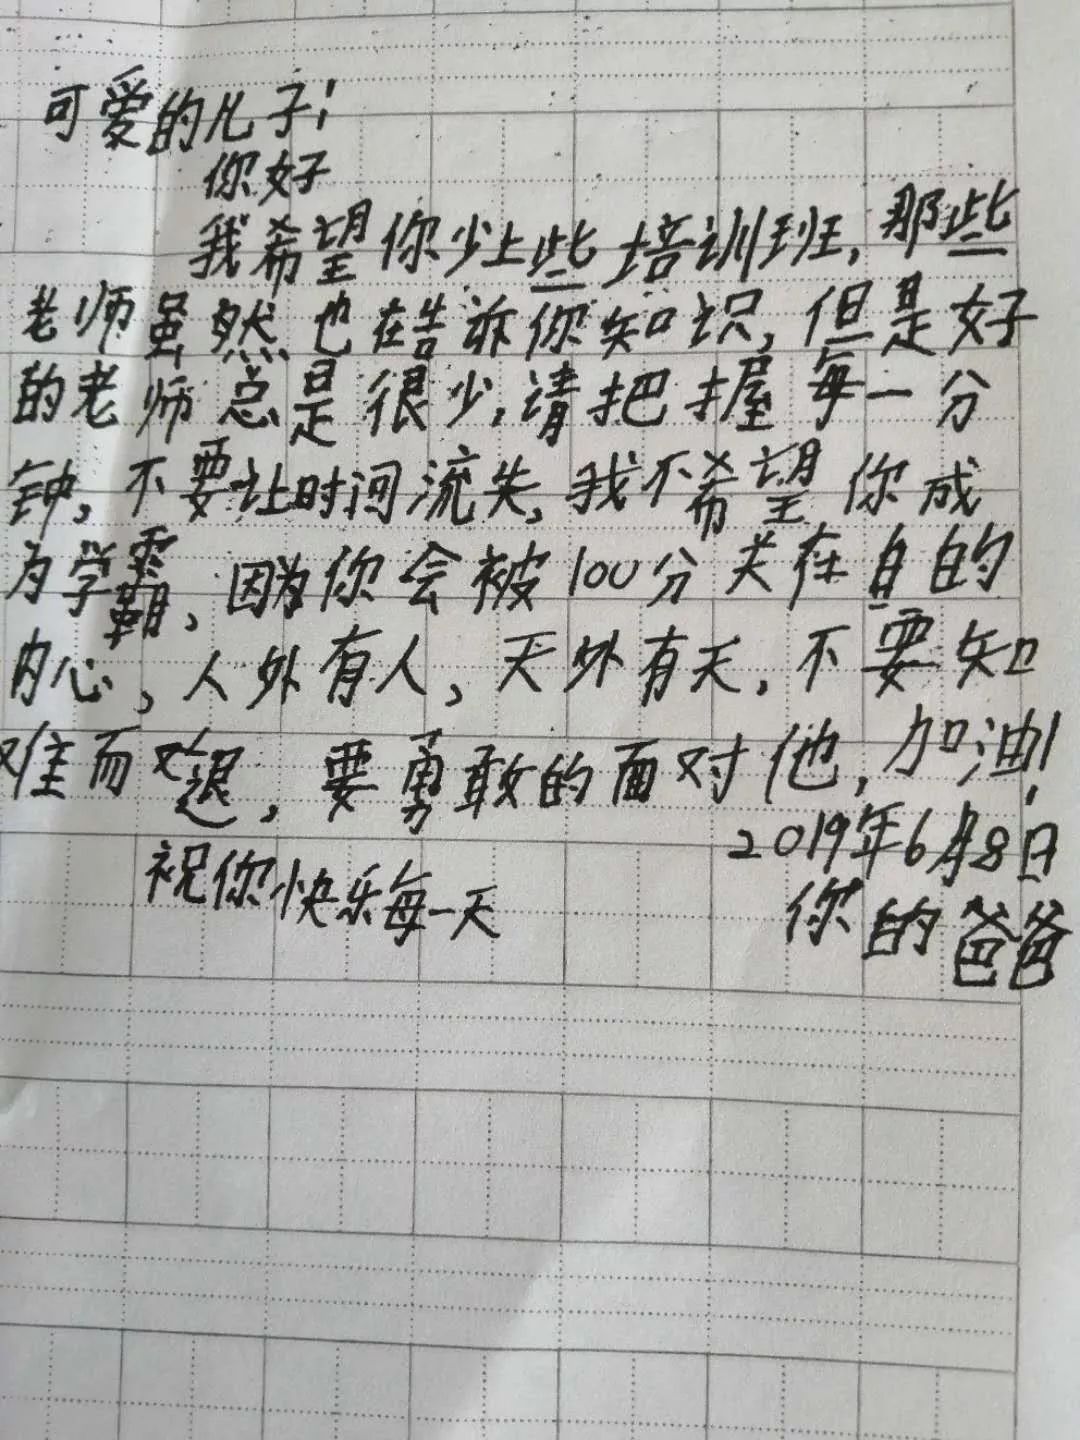 可爱的儿子!
你好
我希望你少上些培训班,那些
老师虽然也在告诉你知识,但是好
的老师总是很少,请把握每一分
钟,不要让时间流失,我不希望你成
为学霸,因为你会被100分关在自的
内心,人外有人,天外有天,不要知
难而退,要勇敢的面对他,加油!
2019年6月8日
祝你快乐每一天
你的爸爸